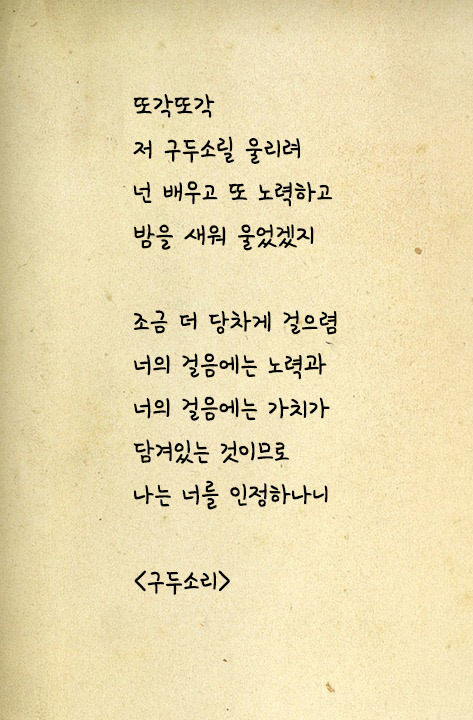 또각또각
저 구두소릴 울리려
넌 배우고 또 노력하고
밤을 새워 울었겠지
조금 더 당차게 걸으렴
너의 걸음에는 노력과
너의 걸음에는 가치가
담겨있는 것이므로
나는 너를 인정하나니
<구두소리>